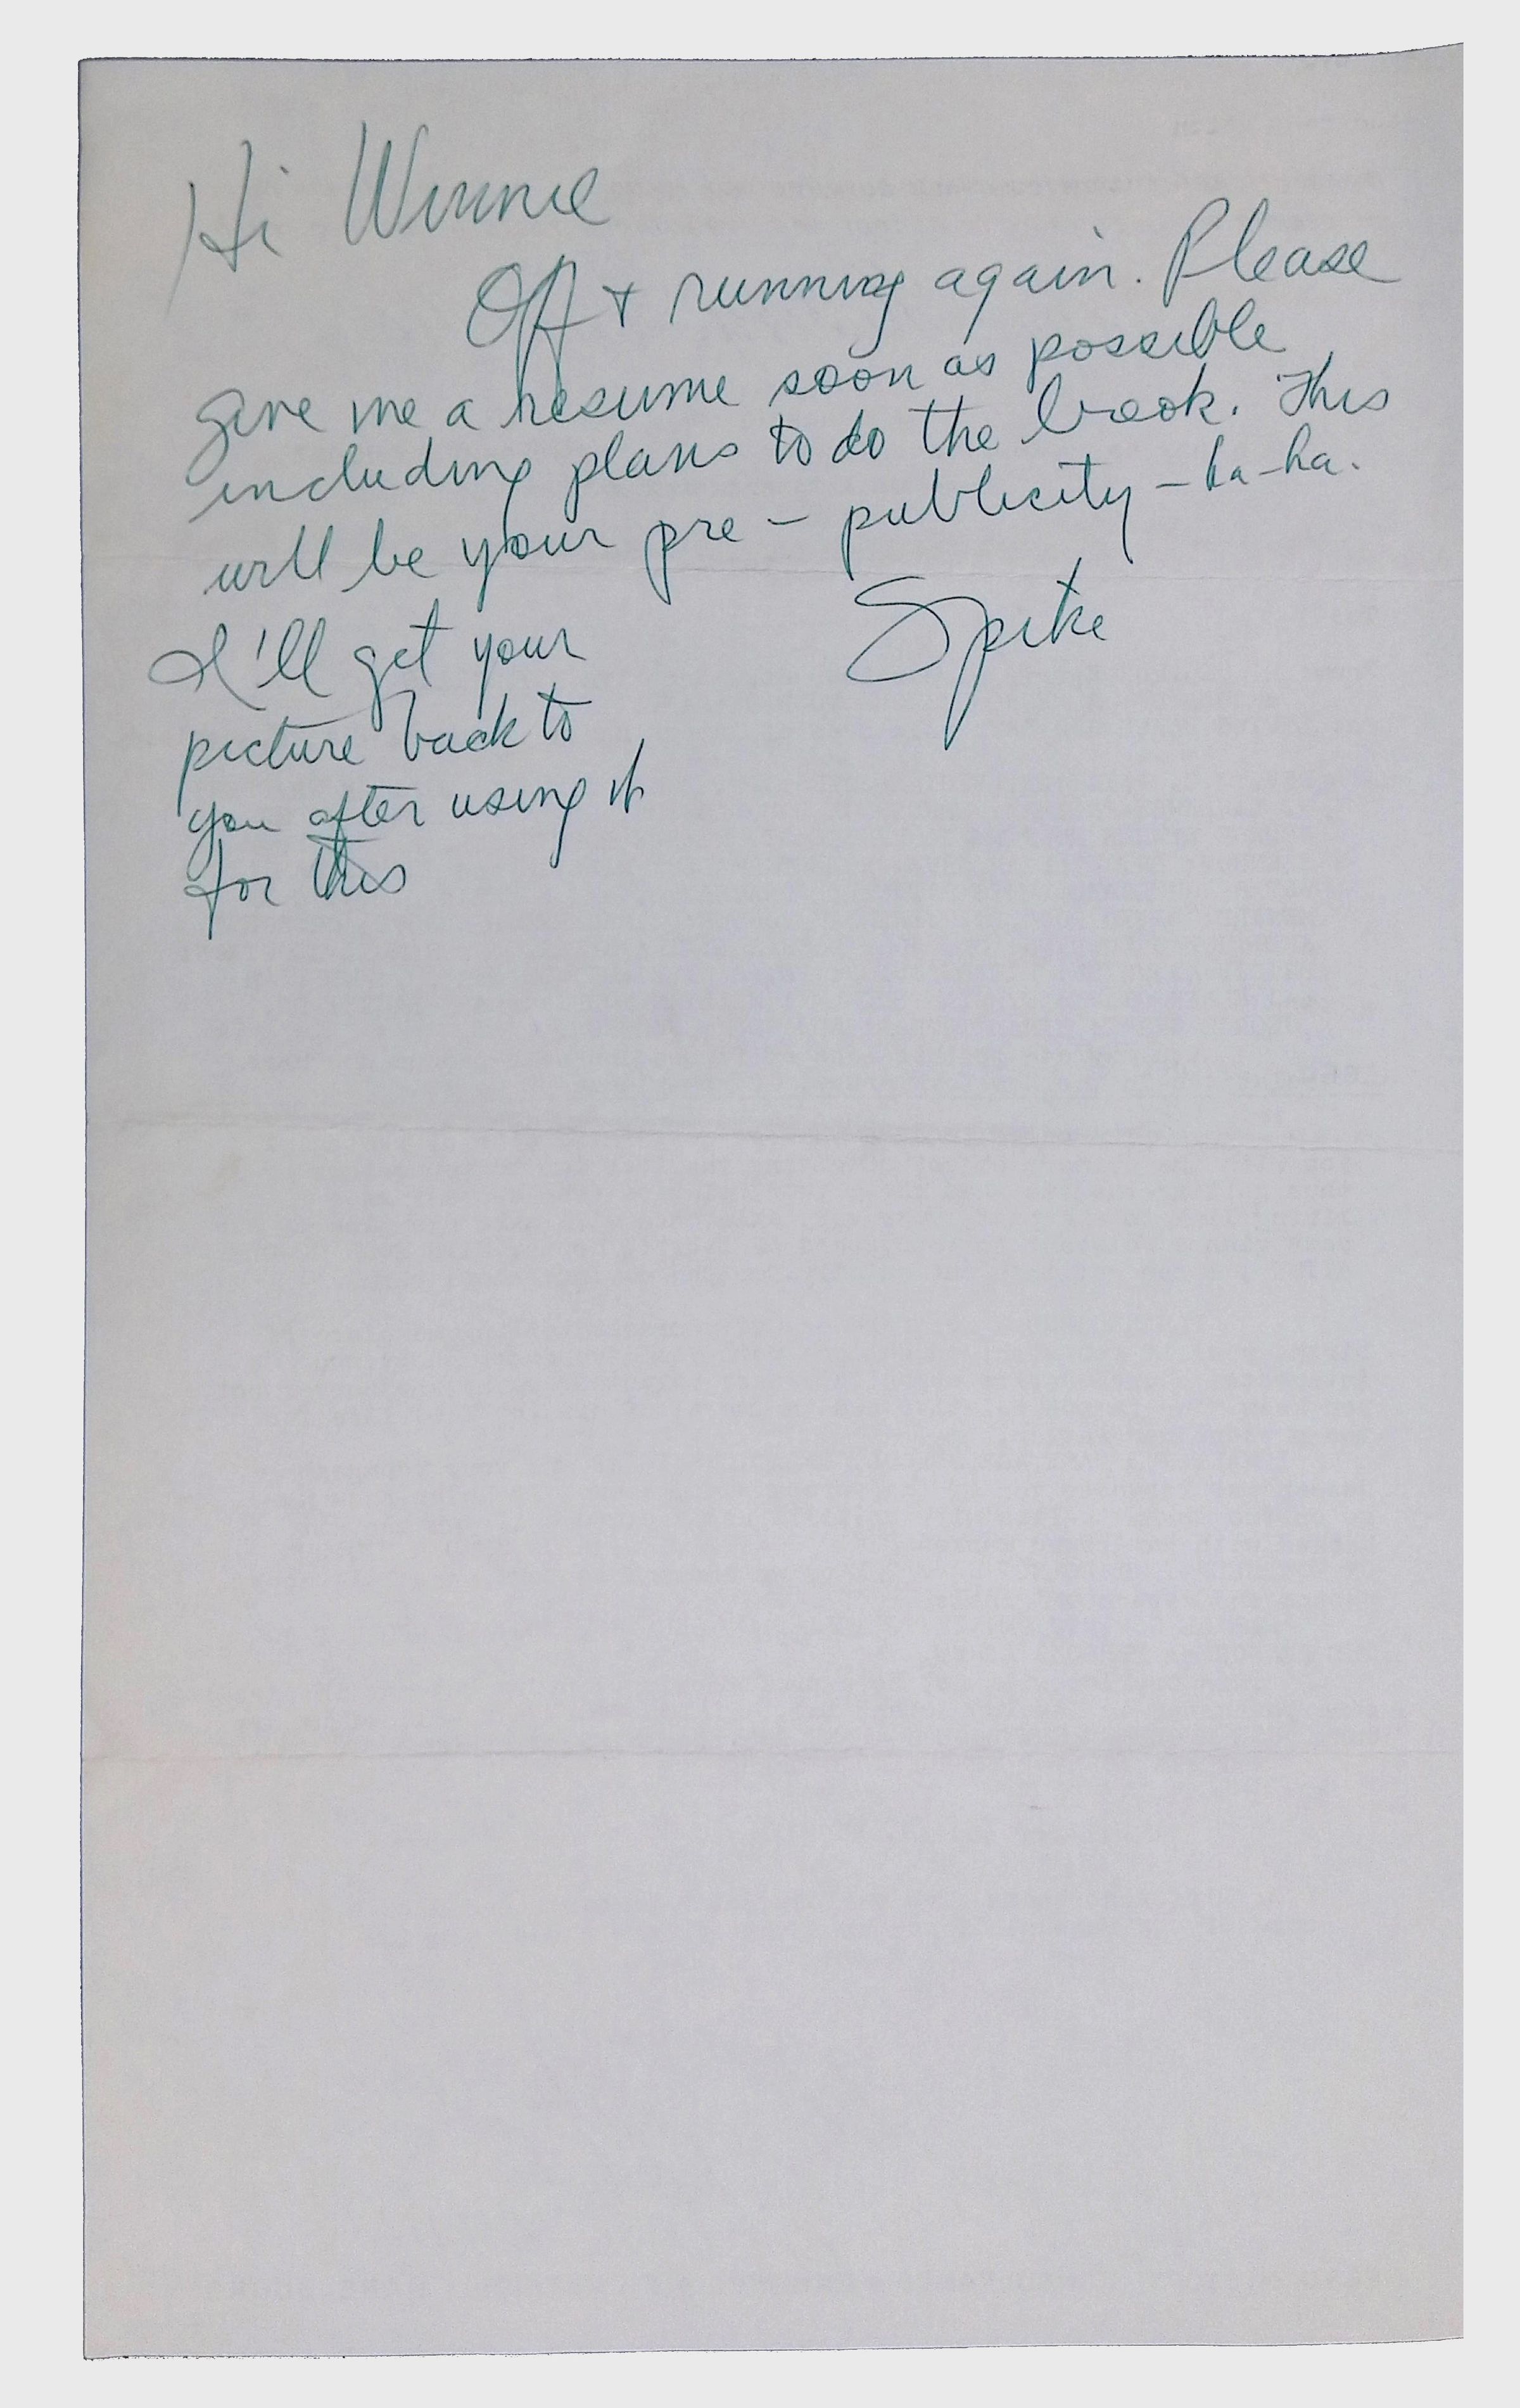 Hi Winnie
Off + running again. Please
give me a resume soon as possible
including plans to do the book. This
will be your pre - publicity - ha-ha.
Spike
I'll get your
picture back to
you after using it
for this